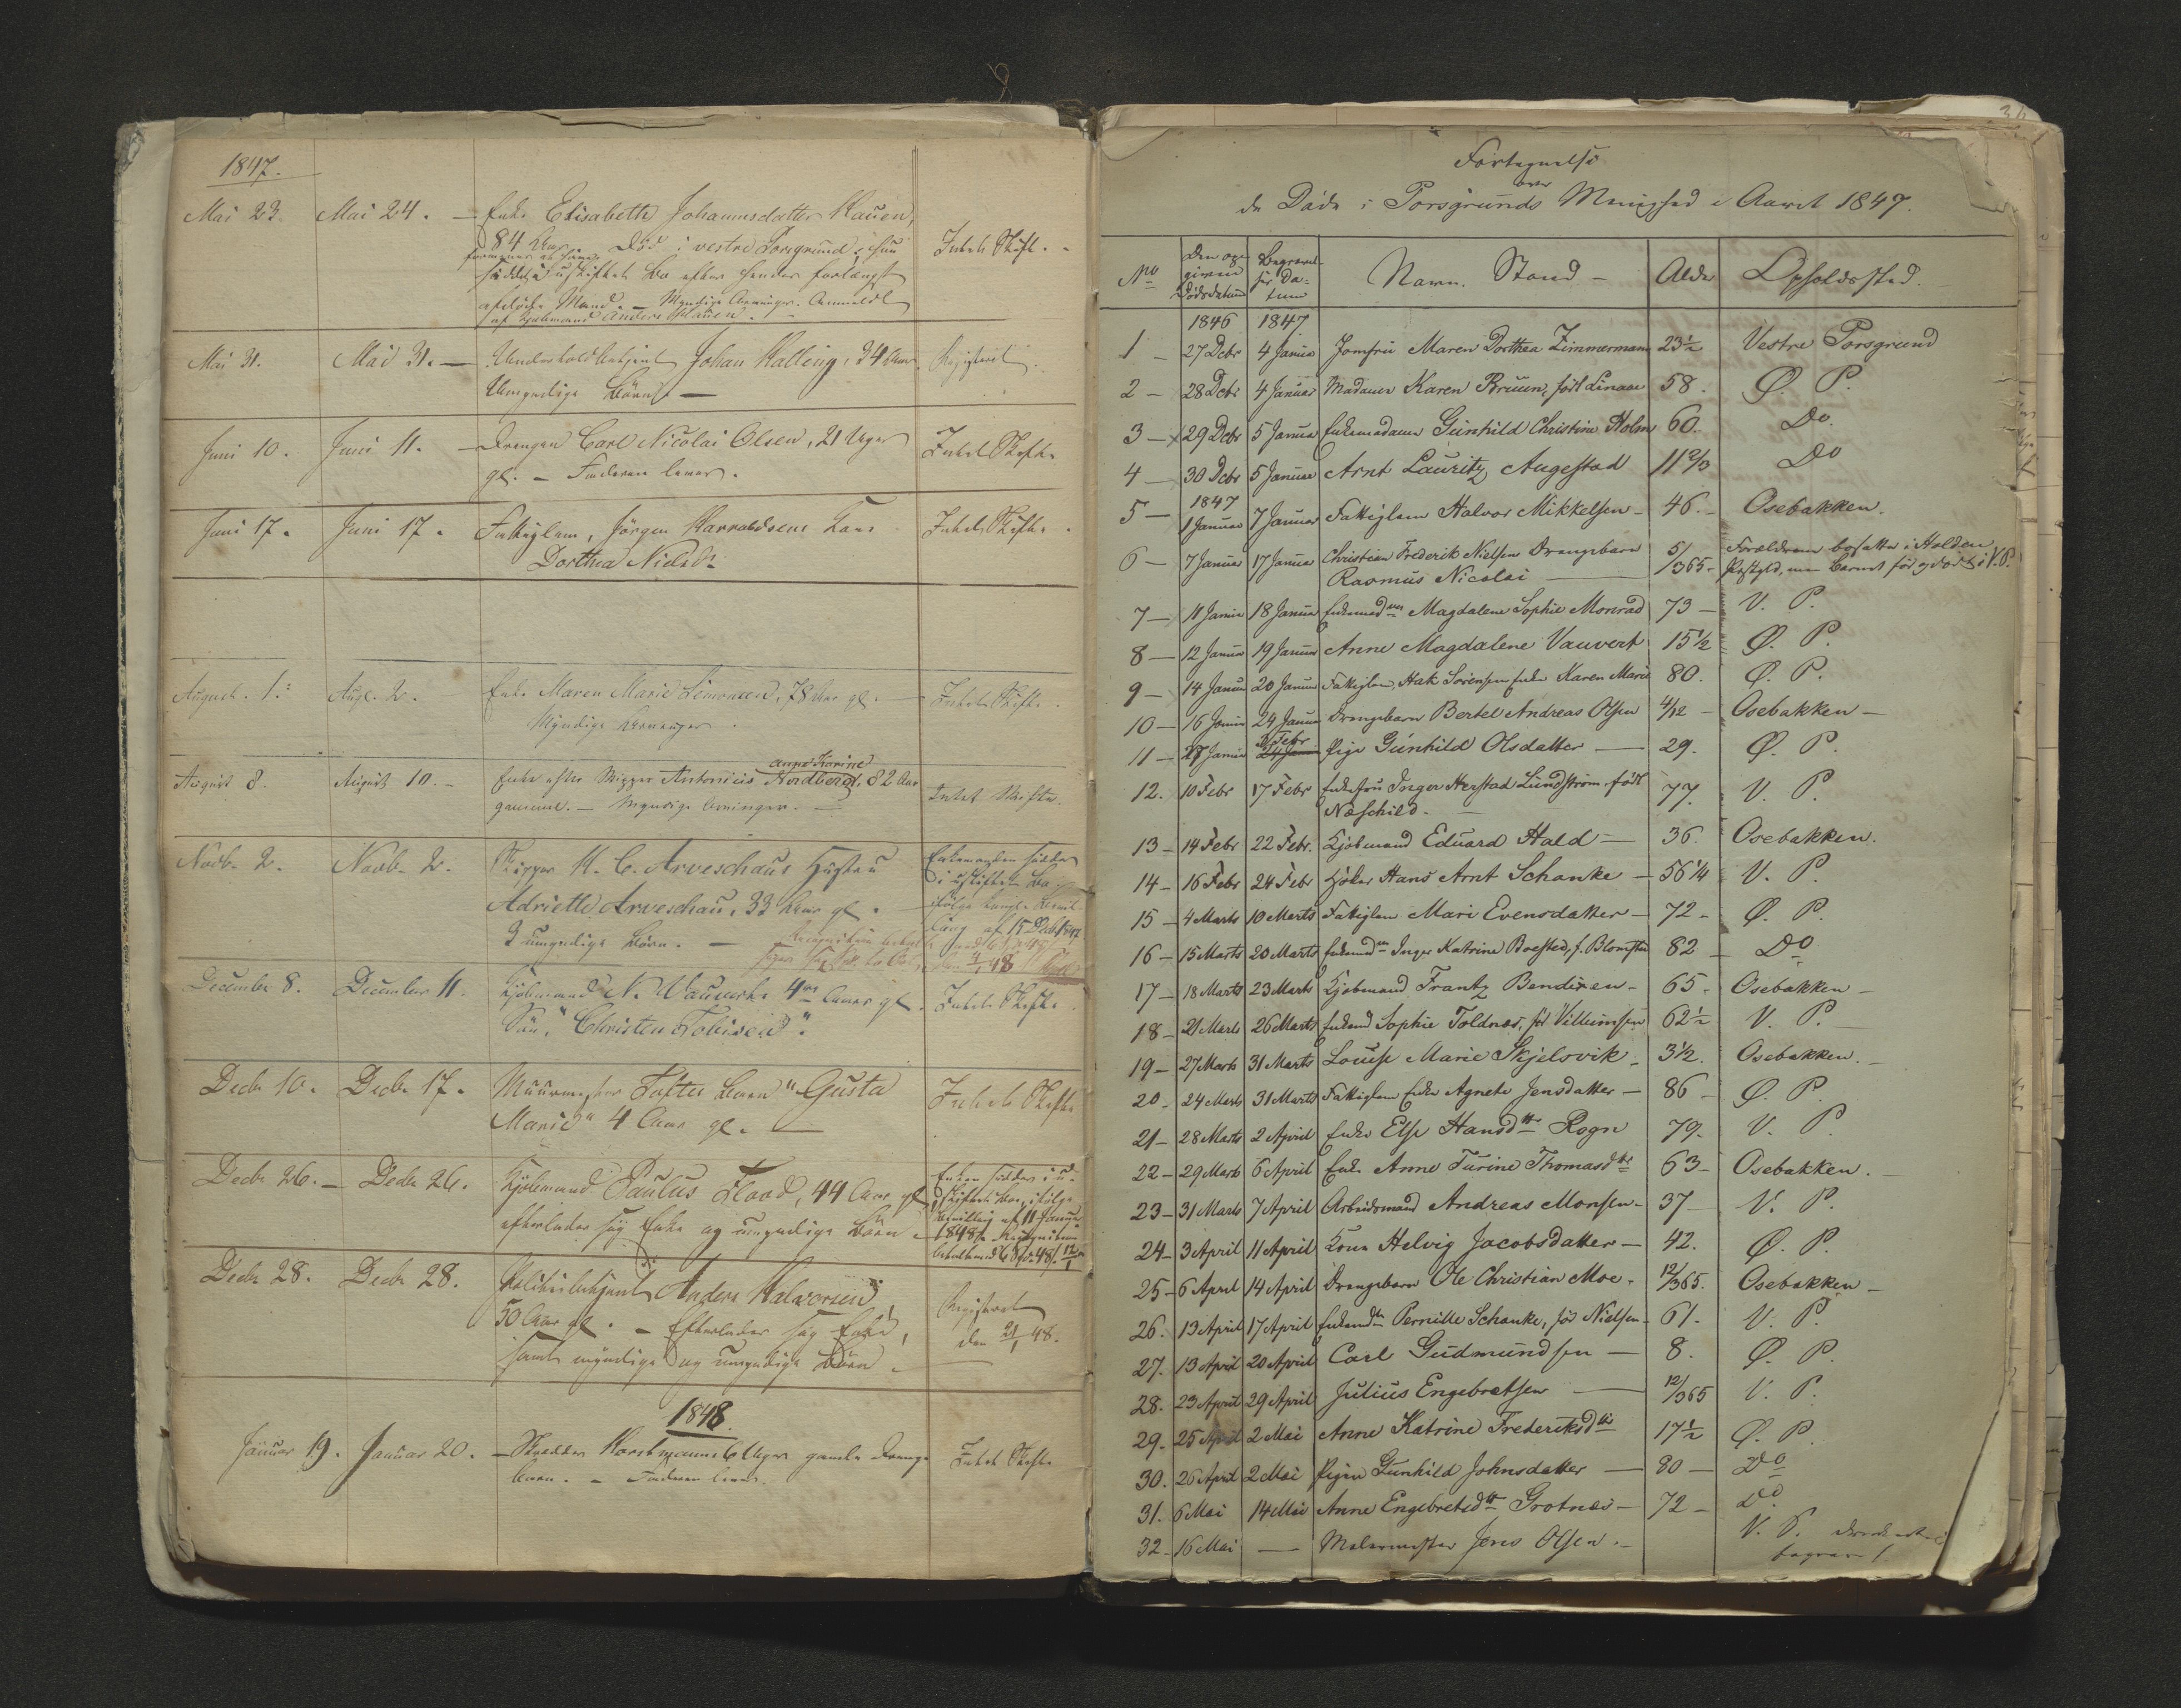 1847.
Mai 23. Mai 24. — Enke Elisabeth Johannesdatter Klauen,
84 Aar. Død i vestre Porsgrund; hun
sidder i uskiftet Bo efter hendes forlængst
afdøde Mand. — Myndige Arvinger. Anmeldt
af Kjøbmand Anders Klauen. —
Intet Skifte.
Mai 31. Mai 31. — Underkoldbetjent Johan Kalleng, 34 Aar.
Umyndige Børn. —
Registreret.
Juni 10. Juni 11. — Drengen Carl Nicolai Olsen, 21 Uger
gl. — Faderen lever.
Intet Skifte
Juni 17. Juni 17. Fattiglem, Jörgen Harraldsens Kone
Dorthea Nielsd.
Intet Skifte.
August. 1. Aug. 2. — Enke Maren Marie Simonsen, 78 Aar gl. —
Myndige Arvinger.
Intet Skifte.
Anne Torine
August 8. August 10. — Enke efter Skipper Antonius Nordberg, 82 Aar
gammel. — Myndige Arvinger. —
Intet Skifte.
Novb. 2. Novb. 2. Skipper H. C. Arveschous Hustru
Adriette Arveschou, 33 Aar gl.
3 umyndige Børn. —
Enkemanden sidder
i uskiftet Bo
ifølge
af 15 Decb 1847
December 8. December 11. Kjøbmand N. Vauverts 4 Aar gl.
Søn, "Christen Tobisen".
Intet Skifte
Decbr 10. Decbr 17. Muurmester Tufter Barn "Gusta
Marie" 4 Aar gl. —
Intet Skifte
Decbr 26. — Decbr 26. Kjøbmand Paulus Flood, 44 Aar gl.
efterlader sig Enke og umyndige Børn.
Enken sidder i u-
skiftet Bo, ifølge
Bevilling af 11 Januar
1848.
Decbr 28. Decbr 28. Politibetjent Anders Halvorsen,
50 Aar gl. — Efterlader sig Enke,
samt myndige og umyndige Børn.
Registreret
den 21/1 48.
1848.
Januar 19. Januar 20. — Skredder Horstmanns 6 Uger gamle Drenge
barn. — Faderen lever.
Intet Skifte
Fortegnelse
over
de Døde i Porsgrunds Menighed i Aaret 1847.
No Den op-givne Dødsdatum Begravel-ses Da-tum Navn. Stand — Alder Opholdssted.
1846 1847
1 — 27 Dcbr 4 Januar Jomfru Maren Dorthea Zimmermann 23½ Vestre Porsgrund
2 — 28 Dcbr 4 Januar Madame Karen Bruun, født Linaae 58. Ø. P.
3 — 29 Dcbr 5 Januar Enkemadame Gunhild Christine Holm 60. Do.
4 — 30 Dcbr 5 Januar Arnt Lauritz Augestad 11 2/3 Do
1847
5 — 1 Januar 7 Januar Fattiglem Halvor Mikkelsen — 46. — Osebakken.
6 — 7 Januar 17 Januar Christian Frederik Nielsens Drengebarn 5/365 — Forældrene bosatte i Halden
Rasmus Nicolai — Præstgjeld, men Barnet født og døbt i V. P.
7 — 11 Januar 18 Januar Enkemadme Magdalene Sophie Monrad 73 — V. P.
8 — 12 Januar 19 Januar Anne Magdalene Vauvert 15½ Ø. P.
9 — 14 Januar 20 Januar Fattiglem, Hak Sørensens Enke Karen Marie 80. Ø. P.
10 — 16 Januar 24 Januar Drengebarn Bertel Andreas Olsen 4/12 — Osebakken —
11 — 27 Januar Febr Pige Gunhild Olsdatter — 29. Ø. P.
12. 10 Febr 17 Febr Enkefru Inger Herstad Lundstrøm, født
Næschild. — 77. V. P.
13 — 14 Febr 22 Febr. Kjøbmand Eduard Hald — 36. Osebakken.
14 — 16 Febr 24 Febr Høker Hans Arnt Schanke — 56¼ V. P.
15 — 4 Marts 10 Marts Fattiglem Mari Evensdatter — 72 — Ø. P.
16 — 15 Marts 20 Marts Enkemadm Inger Katrine Boested, f. Blomsten 82 — Do
17 — 18 Marts 23 Marts Kjøbmand Frantz Bendixen — 65 — Osebakken —
18 — 21 Marts 26 Marts Enkemd Sophie Toldnæs, fød Villumsen 62½ V. P.
19 — 27 Marts 31 Marts Louise Marie Skjelsvik — 3½. Osebakken. —
20 — 24 Marts 31 Marts Fattiglem Enke Agnete Jensdatter — 86 — Ø. P.
21 — 28 Marts 2 April Enke Else Hansdtr Rogn 79. V. P.
22 — 29 Marts 6 April Enke Anne Turine Thomasdtr 63 — Osebakken. —
23 — 31 Marts 7 April Arbeidsmand Andreas Monsen — 37 — V. P.
24 — 3 April 11 April Kone Helvig Jacobsdatter — 42. Ø. P.
25 — 6 April 14 April Drengebarn Ole Christian Moe — 12/365. Osebakken —
26. 13 April 17 April Enkemdm Pernille Schanke, fød Nielsen — 61 — V. P.
27. 13 April 20 April Carl Gudmundsen — 8. Ø. P.
28. 23 April 29 April Julius Engebretsen — 12/365 V. P.
29. 25 April 2 Mai Anne Katrine Frederiksdtr 17½ Ø. P.
30. 26 April 2 Mai Pigen Gunhild Johnsdatter — 80 — Do
31. 6 Mai 14 Mai Anne Engebretsdtr Grotnæs — 72 — Do.
32 — 16 Mai — Malermester Jens Olsen. — V. P.